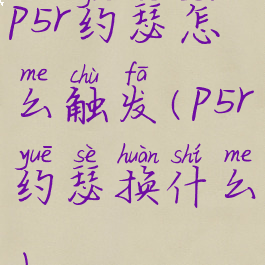 p5r约瑟怎
me chù fā
么触发(p5r
yuē sè huàn shí me
约瑟换什么
)